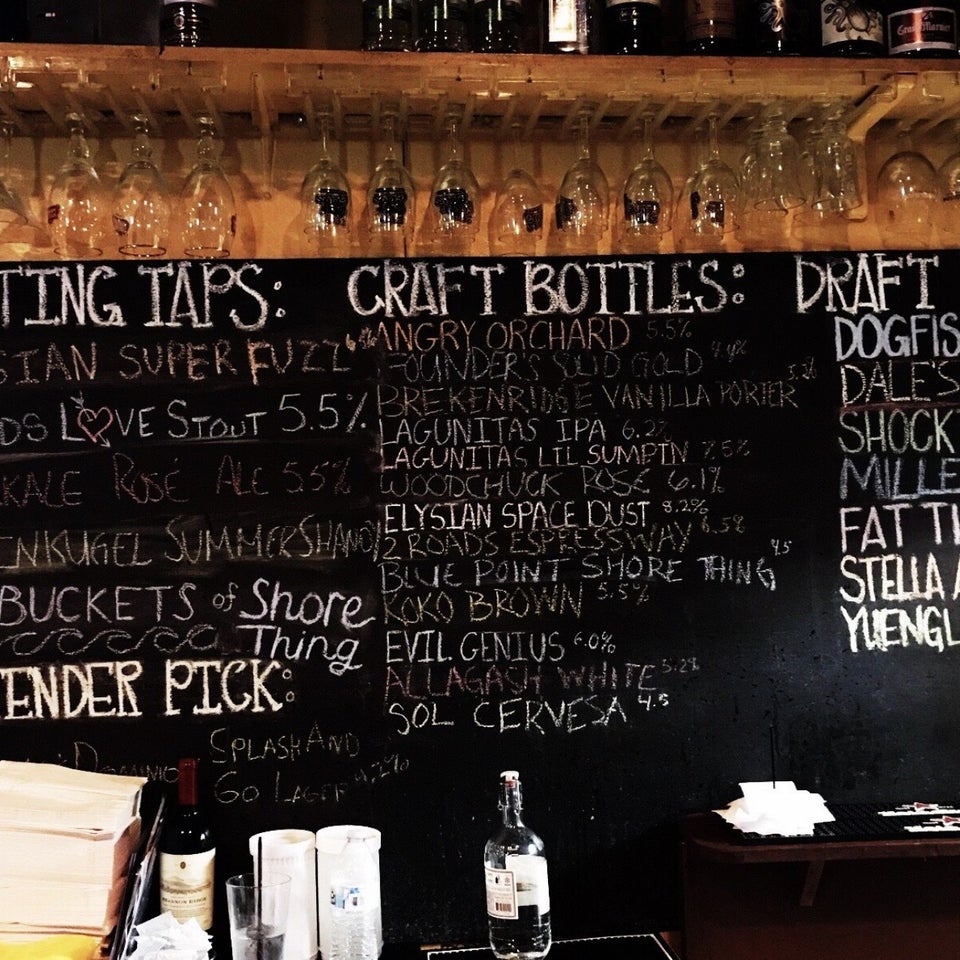 TING TAPS:
SIAN SUPER FUZZ
DS LOVE STOUT 5.5%
KALE ROSÉ ALE 5.5%
ENKUGEL SUMMER SHANDY
BUCKETS of Shore
Thing
TENDER PICK:
DOMINIO
SPLASH AND
GO LAGER 4.2%
CRAFT BOTTLES:
ANGRY ORCHARD 5.5%
FOUNDERS SOLID GOLD 4.4%
BREKENRIDGE VANILLA PORTER
LAGUNITAS IPA 6.2%
LAGUNITAS LIL SUMPIN 7.5%
WOODCHUCK ROSÉ 6.1%
ELYSIAN SPACE DUST 8.2%
2 ROADS ESPRESSWAY 6.5%
BLUE POINT SHORE THING 4.5
KOKO BROWN 5.5%
EVIL GENIUS 6.0%
ALLAGASH WHITE 5.2%
SOL CERVESA 4.5
DRAFT
DOGFIS
DALE'S
SHOCK
MILLE
FAT TI
STELLA A
YUENGL
Grand Marnier